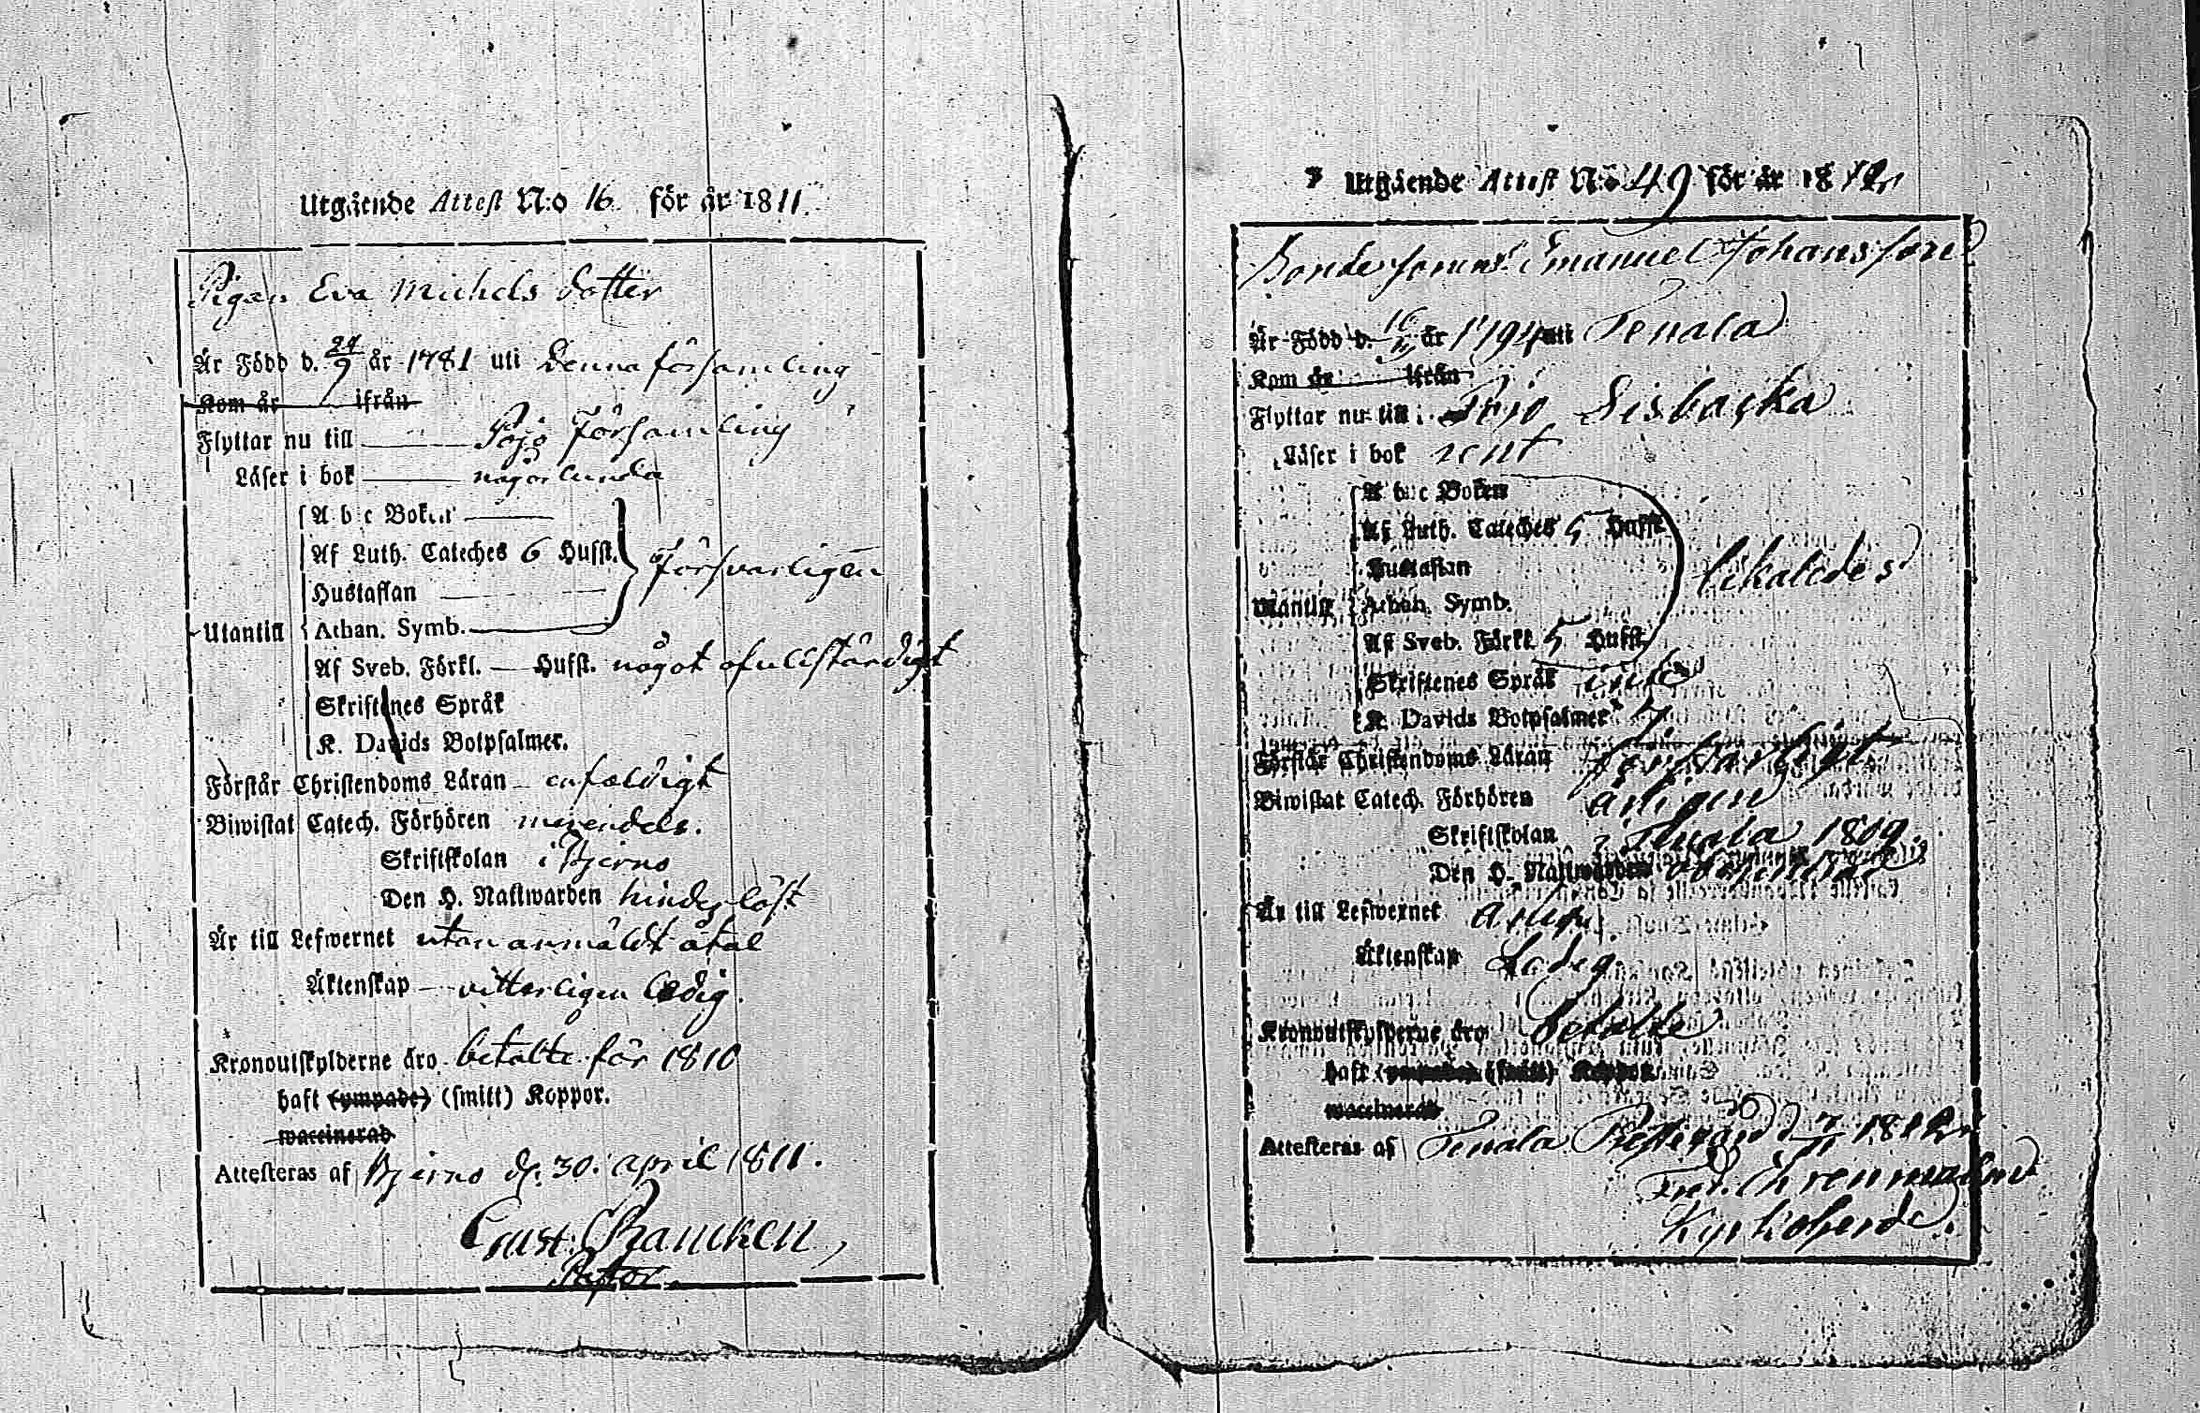 Utgående Attest N:o 16. för år 1811.
Pigan Eva Michels dotter
Är Född d. 24/9 år 1781 uti Denna församling
Kom år ifrån
Flyttar nu till Pojo Församling
Läser i bok någorlunda
A b c Boken
Af Luth. Cateches 6 Hufst.
Försvarligen
Hustaflan
Utantill
Athan. Symb.
Af Sveb. Förkl. Hufst. något ofullständigt
Skriftenes Språk
K. Davids Botpsalmer.
Förstår Christendoms Läran enfaldigt
Biwistat Catech. Förhören merendels.
Skriftskolan i Bjerno
Den H. Nattwarden hinderlöst
Är till Lefwernet utan anmäldt åtal
Äktenskap vitterligen ledig.
Kronoutskylderne äro betalte för 1810
haft (ympade) (smitt) Koppor.
waccinerad
Attesteras af Bjerno d. 30. april 1811.
Gust. Rancken
Pastor
Utgående Attest N:o 49 för år 1812
Bondesonen Emanuel Johansson
Är Född d. 16 år 1794 uti Tenala
Kom år ifrån
Flyttar nu till Pojo Lisbacka
Läser i bok rent
A b c Boken
Af Luth. Cateches 5 Hufst.
Hustaflan
likaledes
Utantill
Athan. Symb.
Af Sveb. Förkl. 5 Hufst.
Skriftenes Språk inte
K. Davids Botpsalmer
Förstår Christendoms Läran försvarligt
Biwistat Catech. Förhören årligen
Skriftskolan i Tenala 1809
Den H. Nattwarden
Är till Lefwernet
Äktenskap Ledig
Kronoutskylderne äro betalte
haft (ympade) (smitt) Koppor
waccinerad
Attesteras af Tenala Prestegård d. 1812
Fred. Ehrenmalm
Kyrkoherde.